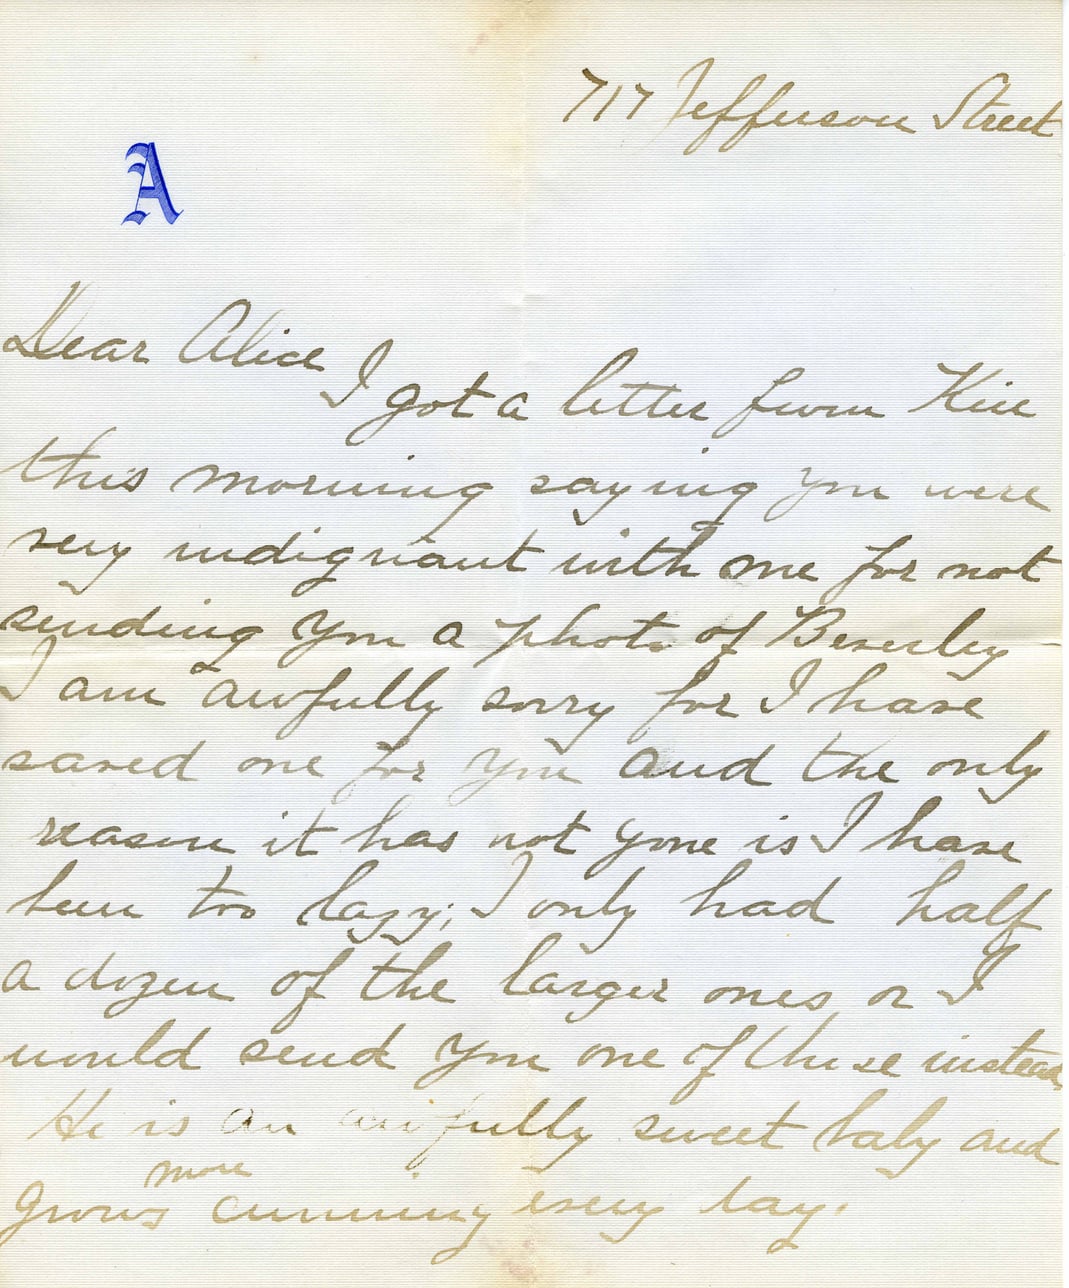 717 Jefferson Street
A
Dear Alice
I got a letter from
this morning saying you were
very indignant with me for not
sending you a photo of Beverley
I am awfully sorry for I have
saved one for you and the only
reason it has not gone is I have
been too lazy; I only had half
a dozen of the larger ones or I
would send you one of these instead
He is an awfully sweet baby and
more
grows cunning every day.